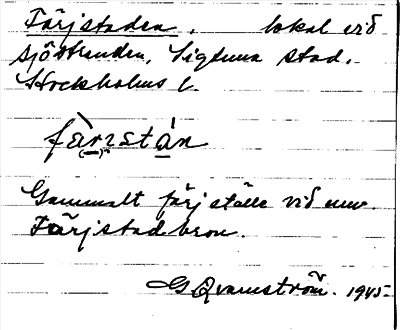 Färjstaden, lokal vid
sjöstranden, Sigtuna stad.
Stockholms l.
Gammalt färjställe vid nuv.
Färjstadbron.
G Qvarnström. 1945.